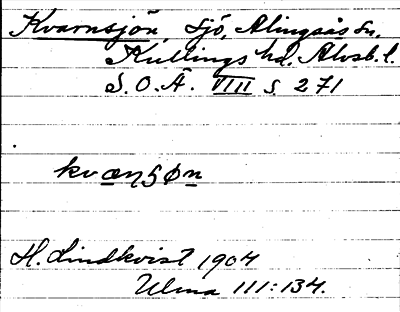 Kvarnsjön, Sjö, Alingsås sn,
Kullings hd, Älvsb. l.
S. O. Ä. VIII s. 271
kvæɳʂøn
H. Lindkvist 1904
Ulma 111:134.